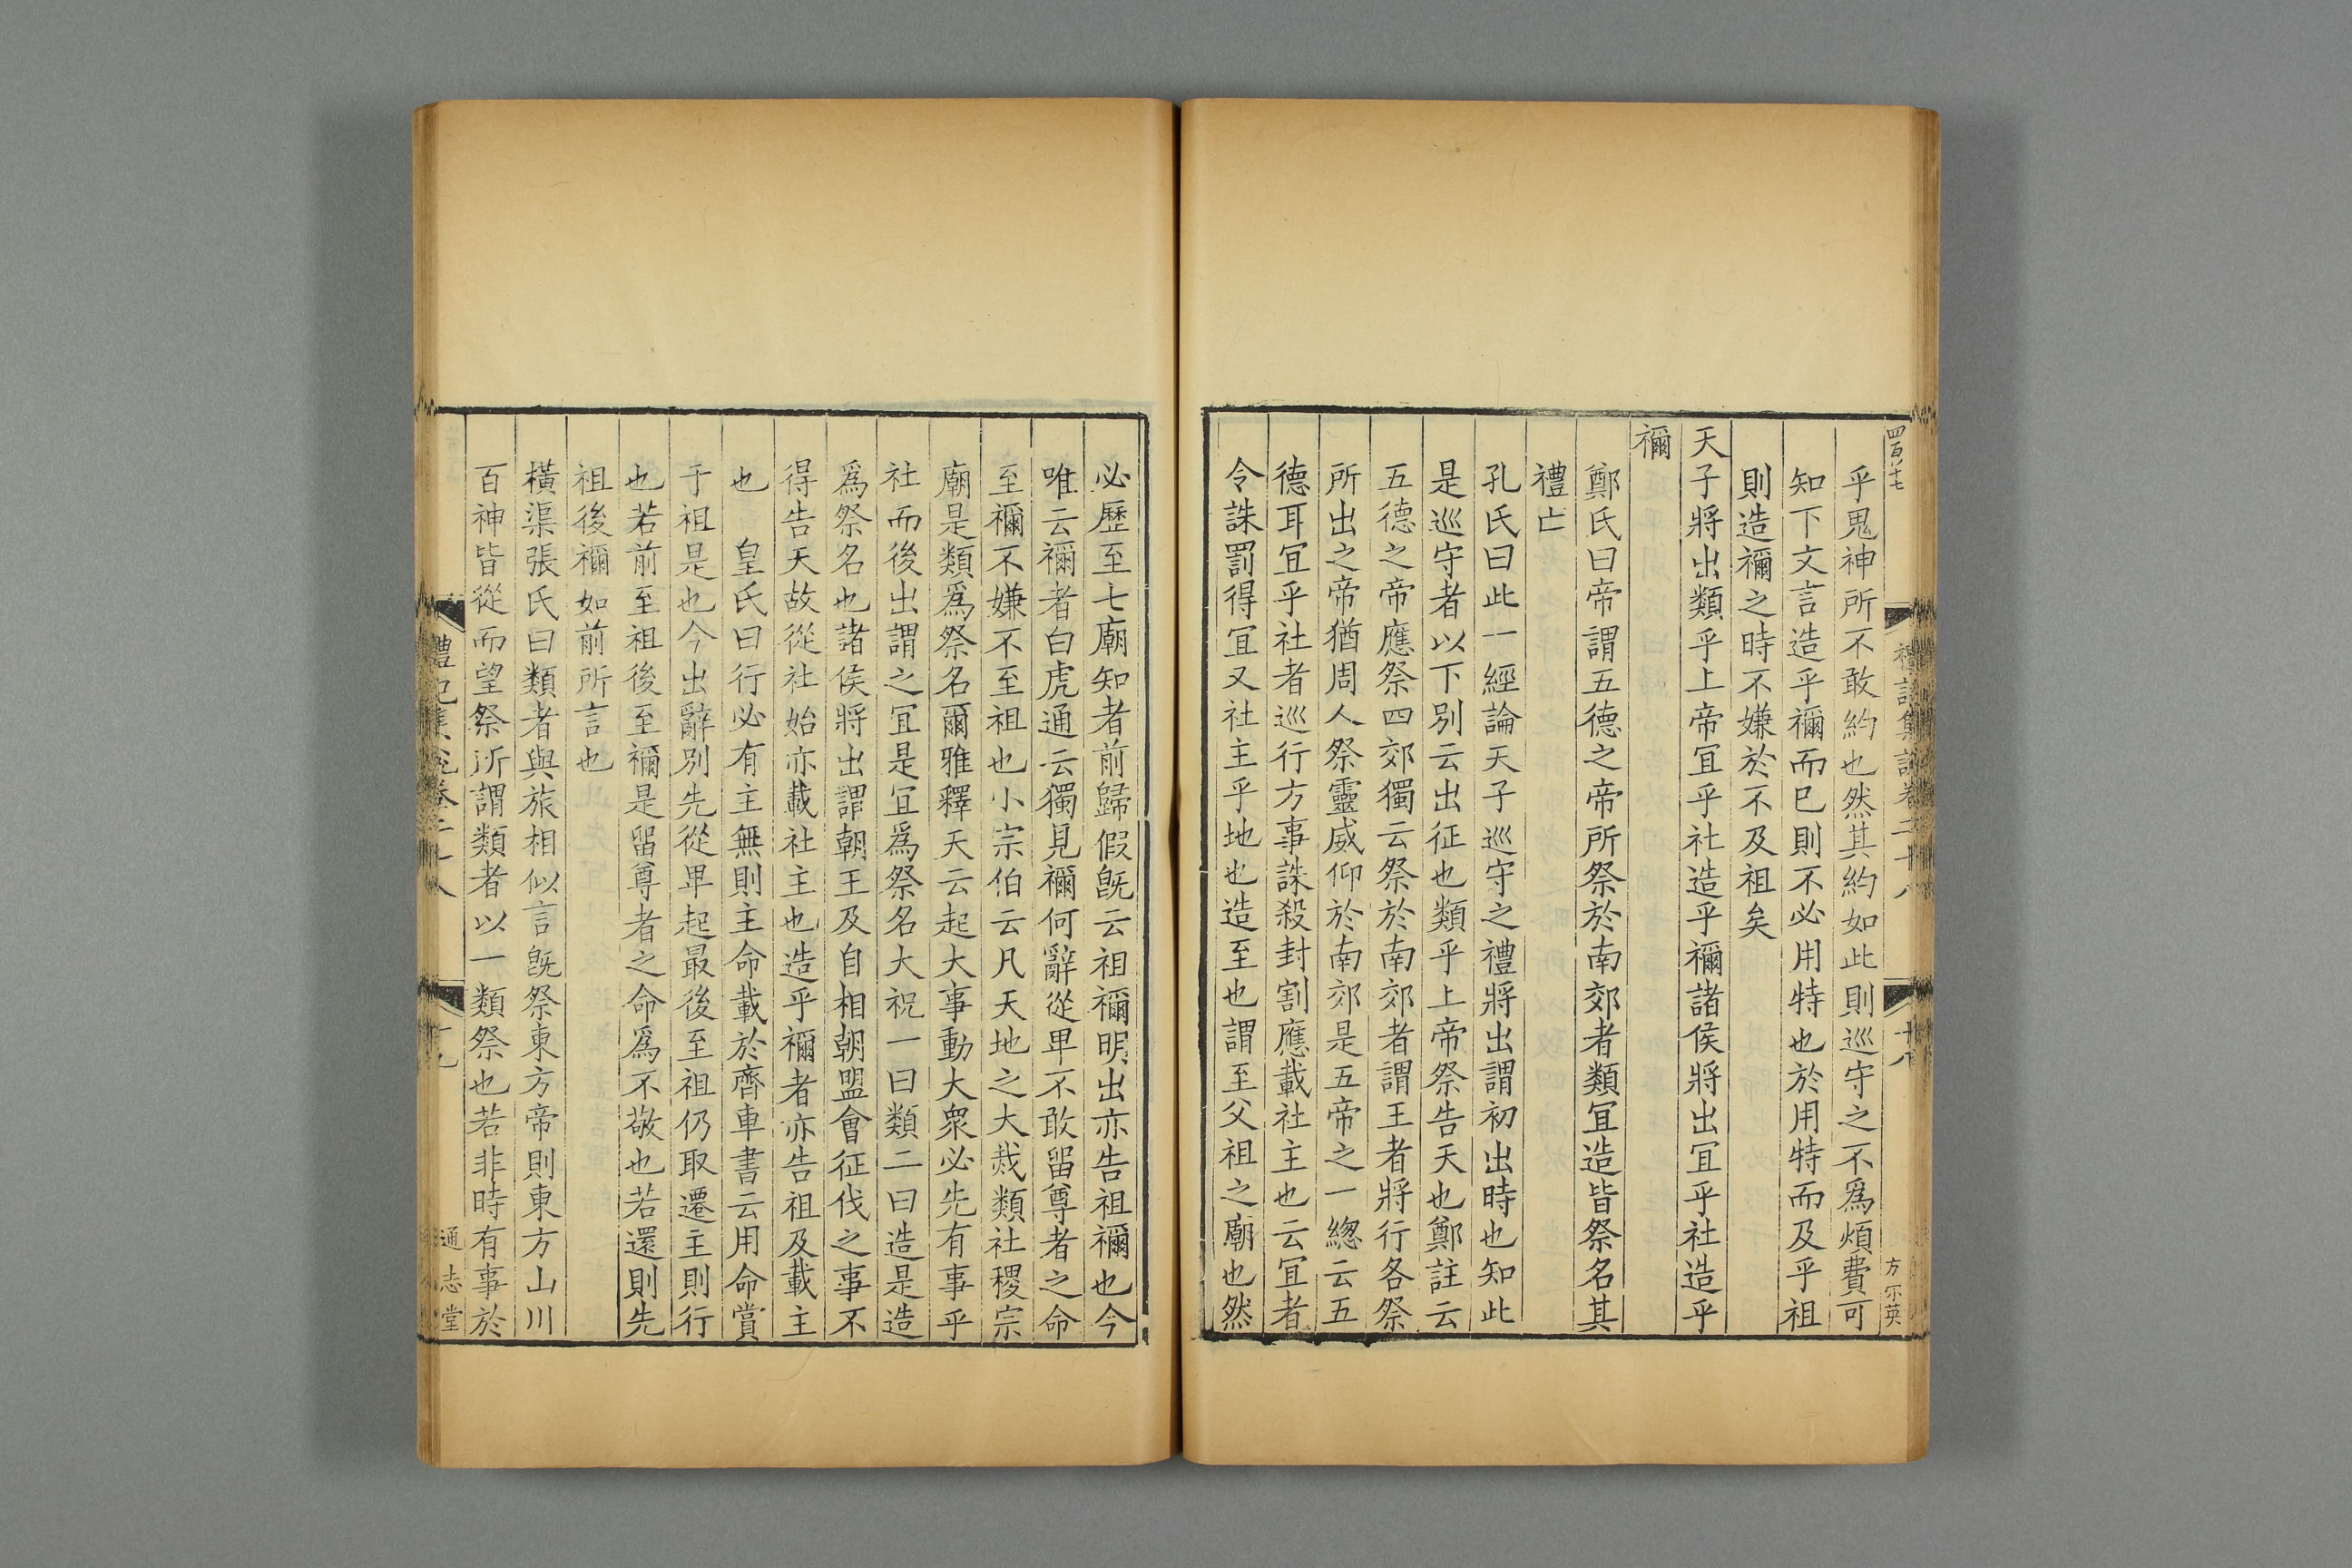 乎鬼神所不敢約也然其約如此則巡守之不爲煩費可
知下文言造乎禰而巳則不必用特也於用特而及乎祖
則造禰之時不嫌於不及祖矣
天子將出類乎上帝宜乎社造乎禰諸侯將出宜乎社造乎
禰
鄭氏曰帝謂五德之帝所祭於南郊者類宜造皆祭名其
禮亡
孔氏曰此一經論天子巡守之禮將出謂初出時也知此
是巡守者以下別云出征也類乎上帝祭告天也鄭註云
五德之帝應祭四郊獨云祭於南郊者謂王者將行各祭
所出之帝猶周人祭靈威仰於南郊是五帝之一緫云五
德耳宜乎社者巡行方事誅殺封割應載社主也云宜者
令誅罰得宜又社主乎地也造至也謂至父祖之廟也然
禮記集說卷二十八
十八
必歷至七廟知者前歸假旣云祖禰明出亦告祖禰也今
唯云禰者白虎通云獨見禰何辭從卑不敢留尊者之命
至禰不嫌不至祖也小宗伯云凡天地之大烖類社稷宗
廟是類爲祭名爾雅釋天云起大事動大衆必先有事乎
社而後出謂之宜是宜爲祭名大祝一曰類二曰造是造
爲祭名也諸侯將出謂朝王及自相朝盟會征伐之事不
得告天故從社始亦載社主也造乎禰者亦告祖及載主
也　皇氏曰行必有主無則主命載於齊車書云用命賞
于祖是也今出辭別先從卑起最後至祖仍取遷主則行
也若前至祖後至禰是留尊者之命爲不敬也若還則先
祖後禰如前所言也
橫渠張氏曰類者與旅相似言旣祭東方帝則東方山川
百神皆從而望祭所謂類者以一類祭也若非時有事於
禮記集說卷二十八
十九
通志堂